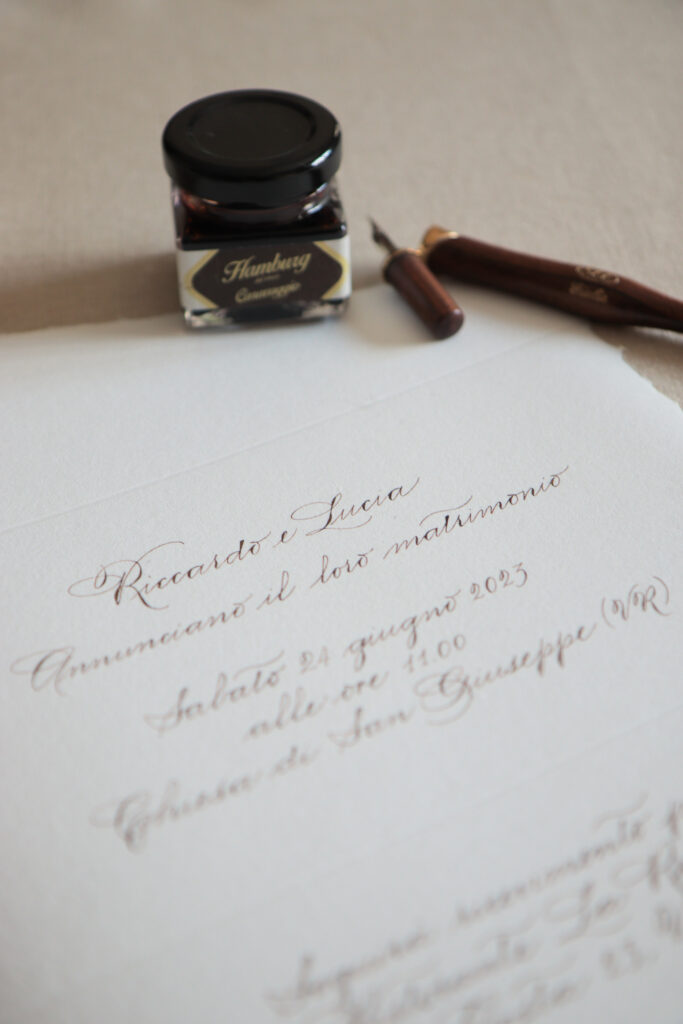 Hamburg
Caravaggio
Riccardo e Lucia
Annunciano il loro matrimonio
Sabato 24 giugno 2023
alle ore 11.00
Chiesa di San Giuseppe (VR)
Seguirà ricevimento
Ristorante La
23,